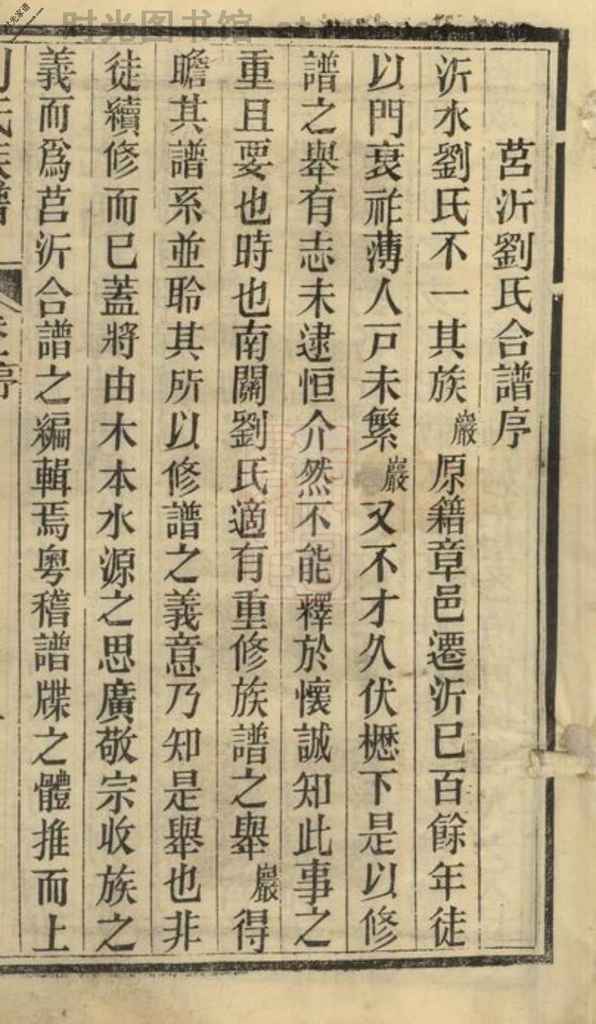 时光图书馆
莒沂劉氏合譜序
沂水劉氏不一其族巖原籍章邑遷沂巳百餘年徒
以門衰祚薄人戸未繁巖又不才久伏櫪下是以修
譜之舉有志未逮恒介然不能釋於懷誠知此事之
重且要也時也南關劉氏適有重修族譜之舉巖得
瞻其譜系並聆其所以修譜之義意乃知是舉也非
徒續修而巳蓋將由木本水源之思廣敬宗收族之
義而爲莒沂合譜之編輯焉粤稽譜牒之體推而上